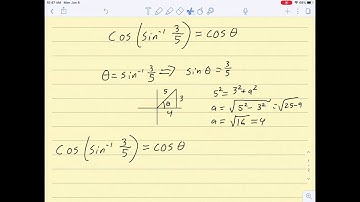 10:47 AM Mon Jun 8
cos(sin⁻¹ 3/5) = cos θ
θ = sin⁻¹ 3/5 ⟹ sin θ = 3/5
5 3 θ 4
5² = 3² + a²
a = √(5² - 3²) = √(25-9)
a = √16 = 4
cos(sin⁻¹ 3/5) = cos θ